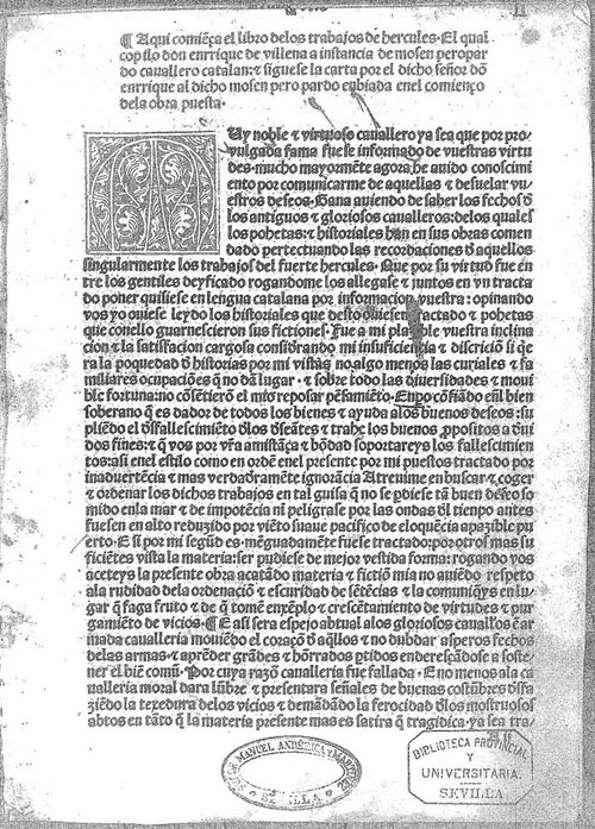 II
¶ Aqui comiẽça el libro delos trabajos de hercules· El qual
copilo don enrrique de villena a instancia de mosen peropar
do cavallero catalan: ⁊ siguese la carta por el dicho señor dõ
enrrique al dicho mosen pero pardo eubiada enel comienço
dela obra puesta·
MUy noble ⁊ virtuoso cavallero ya sea que por pro/
vulgada fama fuese informado de vuestras virtu
des· mucho mayormẽte agora he auido conoscimi
ento por comunicarme de aquellas ⁊ desuelar vu/
estros deseos· Gana auiendo de saber los fechos đ
los antiguos ⁊ gloriosos caualleros: delos quales
los pohetas: ⁊ historiales han en sus obras comen
dado pertectuando las recordaciones đ aquellos
singularmente los trabajos del fuerte hercules· Que por su virtud fue en
tre los gentiles deyficado rogandome los allegase ⁊ juntos en vn tracta
do poner quisiese en lengua catalana por informacion vuestra: opinando
vos yo ouiese leydo los historiales que desto ouiesen tractado ⁊ pohetas
que conello guarnescieron sus fictiones· Fue a mi plazible vuestra inclina
cion ⁊ la satisfacion cargosa considrando mi insuficiencia ⁊ discriciõ si q̃e
ra la poquedad đ historias por mi vistas no algo menos las curiales ⁊ fa
miliares ocupaciões q̃ no dã lugar· ⁊ sobre todo las diversidades ⁊ moui
ble fortuna: no cõsetierõ el mio reposar pẽsamiẽto· Enpo cõfiãdo eñl bien
soberano q̃ es dador de todos los bienes ⁊ ayuda alos buenos deseos: su
pliẽdo el đsfallescimiẽto đlos đseãtes ⁊ trahe los buenos propositos a đui
dos fines: ⁊ q̃ vos por vr̃a amistãça ⁊ bõdad soportareys los fallescimien
tos: asi enel estilo como en ordẽ enel presente por mi puestos tractado por
inadvertẽcia ⁊ mas verdadr̃amẽte ignorãcia Atreuime en buscar ⁊ coger
⁊ ordenar los dichos trabajos en tal guisa q̃ no se p̃diese tã buen đseo so
mido enla mar ⁊ de impotẽcia ni peligrase por las ondas đl tiempo antes
fuesen en alto reduzido por viẽto suaue pacifico de eloquẽcia apazible pu
erto· E si por mi segũd es· mẽguadamẽte fuese tractado: por otros mas su
ficiẽtes vista la materia: ser pudiese de mejor vestida forma: rogando vos
aceteys la presente obra acatãdo materia ⁊ fictiõ mia no auiẽdo respeto
ala rudidad dela ordenaciõ ⁊ escuridad de sẽtẽcias ⁊ la comuniq̃ys en lu
gar q̃ faga fruto ⁊ de q̃ tomẽ enxẽplo ⁊ crescẽtamiento de virtudes ⁊ pur
gamiẽto de vicios· ¶ E asi sera espejo abtual alos gloriosos cauallr̃os ẽ ar
mada cavalleria mouiẽdo el coraçõ đ aq̃llos ⁊ no dubdar asperos fechos
delas armas· ⁊ aprẽder grãdes ⁊ hõrrados p̃tidos enderesçãdose a soste/
ner el biẽ comũ· Por cuya razõ cavalleria fue fallada· E no menos ala ca
valleria moral dara lũbre ⁊ presentara señales de buenas costũbres đsfa
ziẽdo la texedura delos vicios ⁊ demãdãdo la ferocidad đlos mostruosos
abtos en tãto q̃ la materia presente mas es satira q̃ tragidica· ya sea tra/
DE MANUEL ANDÉRICA Y MARTINEZ
SEVILLA
BIBLIOTECA PROVINCIAL
Y
UNIVERSITARIA.
SEVILLA